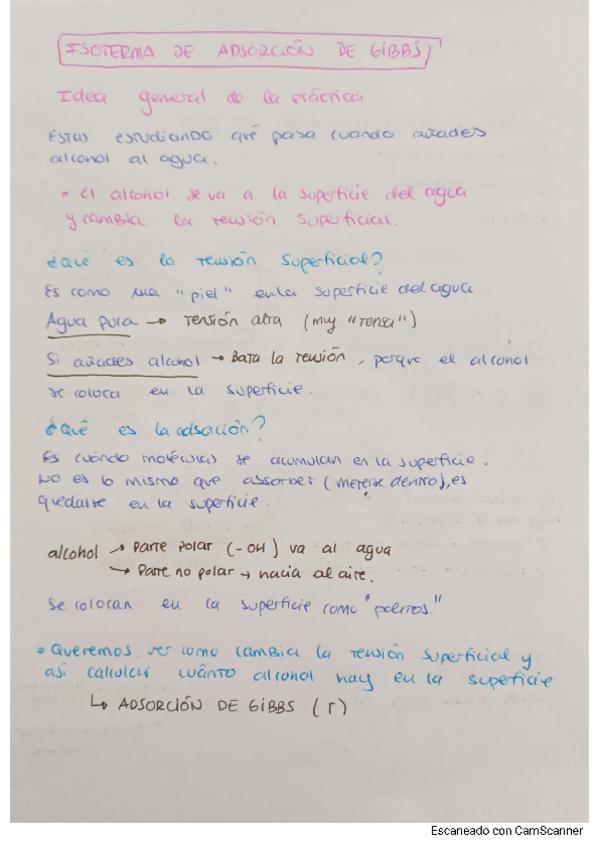 ISOTERMA DE ADSORCIÓN DE GIBBS
Idea general de la práctica
Estas estudiando qué pasa cuando añades
alcohol al agua.
• El alcohol se va a la superficie del agua
y cambia la tensión superficial.
¿Qué es la tensión superficial?
Es como una "piel" en la superficie del agua
Agua pura → Tensión alta (muy "Tensa")
Si añades alcohol → Baja la tensión, porque el alcohol
se coloca en la superficie.
¿Qué es la adsorción?
Es cuándo moléculas se acumulan en la superficie.
No es lo mismo que absorber (meterse dentro), es
quedarse en la superficie.
alcohol → Parte polar (-OH) va al agua
→ Parte no polar → hacia al aire.
Se colocan en la superficie como "palitos."
• Queremos ver como cambia la tensión superficial y
así calcular cuánto alcohol hay en la superficie
↳ ADSORCIÓN DE GIBBS (Γ)
Escaneado con CamScanner